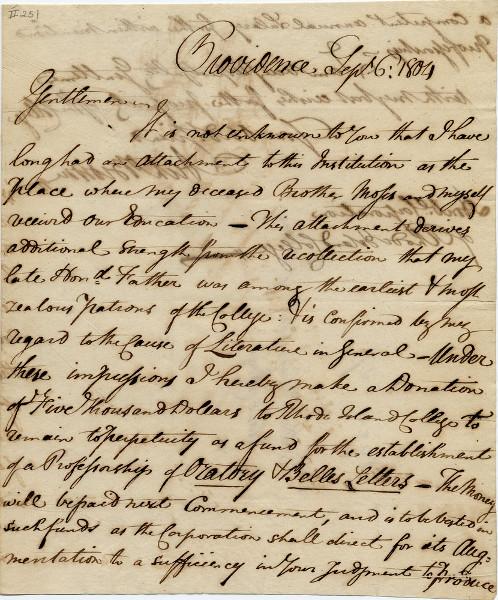 II 251
Providence Sept. 6. 1804
Gentlemen
It is not unknown to You that I have
long had an attachment to this Institution as the
place where my deceased Brother Moses and myself
received our Education — this attachment derives
additional strength from the recollection that my
late Hond. Father was among the earliest & most
zealous Patrons of the College: & is confirmed by my
regard to the Cause of Literature in General — Under
these impressions I hereby make a Donation
of Five Thousand Dollars to Rhode Island College to
remain to perpetuity as a fund for the establishment
of a Professorship of Oratory & Belles Letters — The Money
will be paid next Commencement, and is to be vested in
such funds as the Corporation shall direct for its Aug-
mentation to a sufficiency in Your Judgment to produce